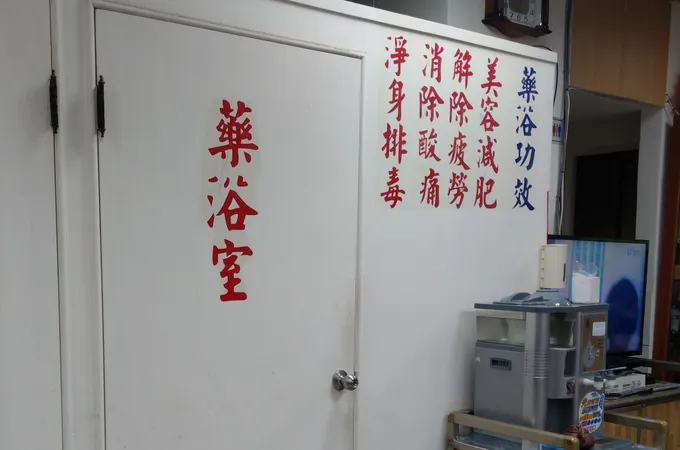 藥浴室
藥浴功效
美容減肥
解除疲勞
消除酸痛
淨身排毒